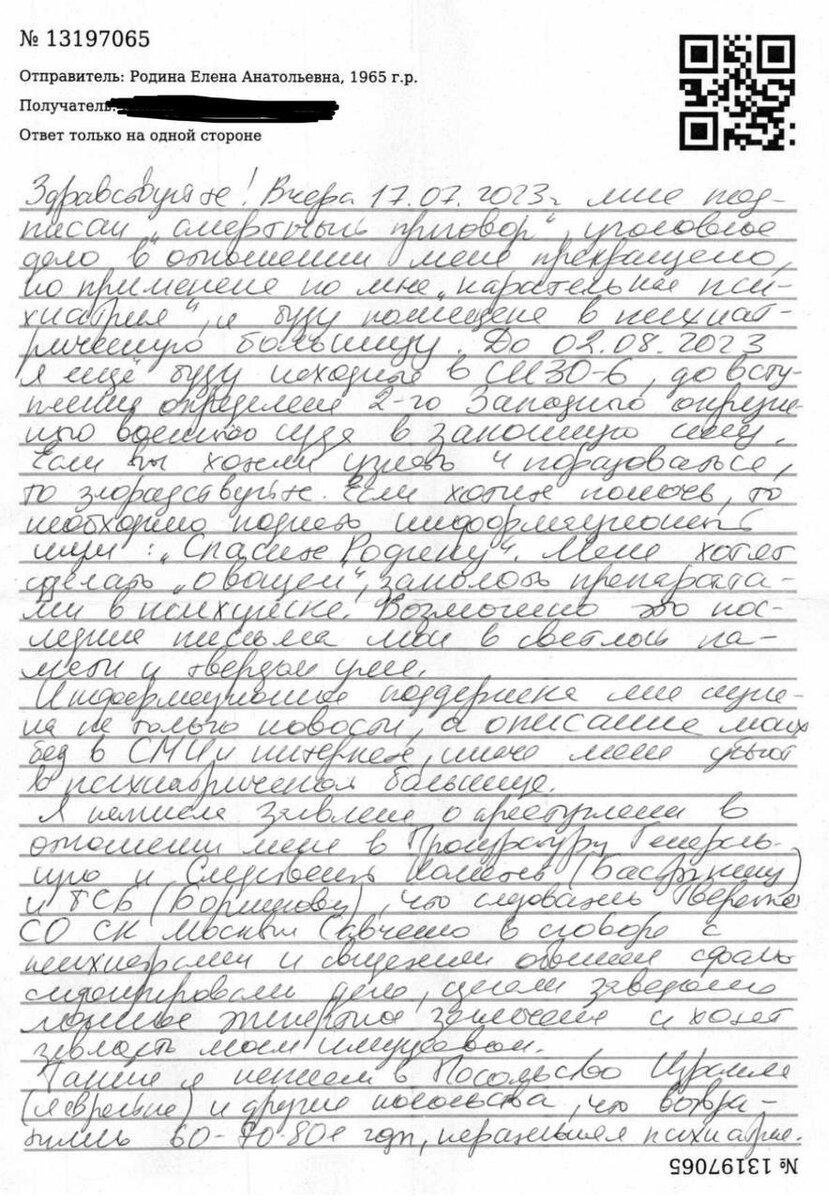 № 13197065
Отправитель: Родина Елена Анатольевна, 1965 г.р.
Получатель:
Ответ только на одной стороне
Здравствуйте! Вчера 17.07.2023г мне под-
писан „смертный приговор“, уголовное
дело в отношении меня прекращено,
но применена ко мне „карательная пси-
хиатрия“, и буду помещена в психиат-
рическую больницу. До 02.08.2023
я ещё буду находиться в СИЗО-6, до всту-
пления определения 2-го Западного окружн-
ого военного суда в законную силу.
Если вы хотели узнать и порадоваться,
то злорадствуйте. Если хотите помочь, то
необходимо поднять информационный
шум: „Спасите Родину“. Меня хотят
сделать „овощем“, заколоть препарата-
ми в психушке. Возможно это пос-
ледние письма мои в светлой па-
мяти и твердом уме.
Информационная поддержка мне нужн-
на не только новости, а описание моих
бед в СМИ и интернете, иначе меня убьют
в психиатрической больнице.
Я написала заявление о преступлении в
отношении меня в Прокуратуру Генераль-
ную и Следственный Комитет (Бастрыкину)
и ФСБ (Бортникову), что следователь Тверского
СО СК Москвы Савченко в сговоре с
психиатрами и сфаль-
сифицировали дело, сделали заведомо
ложное экспертное заключение и хотят
завладеть моим имуществом.
Также я написала в Посольство Израиля
(я еврейка) и другие посольства, что возвра-
тились 60-70-80е годы, карательная психиатрия.
№ 13197065